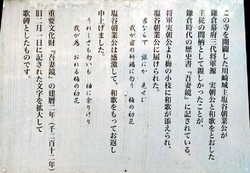 この寺を開闢した川崎城主塩谷朝業が
鎌倉幕府三代将軍源 実朝公と和歌をとおした
主従の間柄として親しかったことが、
鎌倉時代の歴史書『吾妻鏡』に記されている。
将軍実朝公より梅の小枝に和歌が添えられ、
塩谷朝業公に届けられた。
君ならで 誰にか見せむ
我が宿の軒端に匂う 梅の初花
塩谷朝業公は感激して、和歌をもってお返し
申上げました。
うれしさも匂いも 袖に余りけり
我が為 おれる梅の初花
重要文化財『吾妻鏡』の建暦二年（一二一二年）
旧二月一日に記された文字を拡大して
歌碑としたものです。